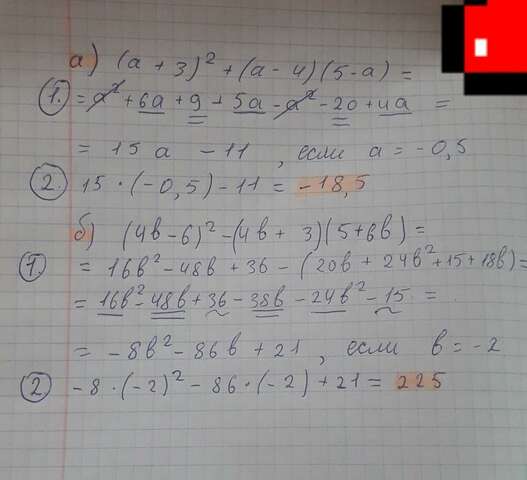 а) (a + 3)² + (a - 4)(5 - a) =
1. = a² + 6a + 9 + 5a - a² - 20 + 4a =
= 15a - 11, если a = -0,5
2. 15 · (-0,5) - 11 = -18,5
б) (4b - 6)² - (4b + 3)(5 + 6b) =
1. = 16b² - 48b + 36 - (20b + 24b² + 15 + 18b) =
= 16b² - 48b + 36 - 38b - 24b² - 15 =
= -8b² - 86b + 21, если b = -2
2. -8 · (-2)² - 86 · (-2) + 21 = 225